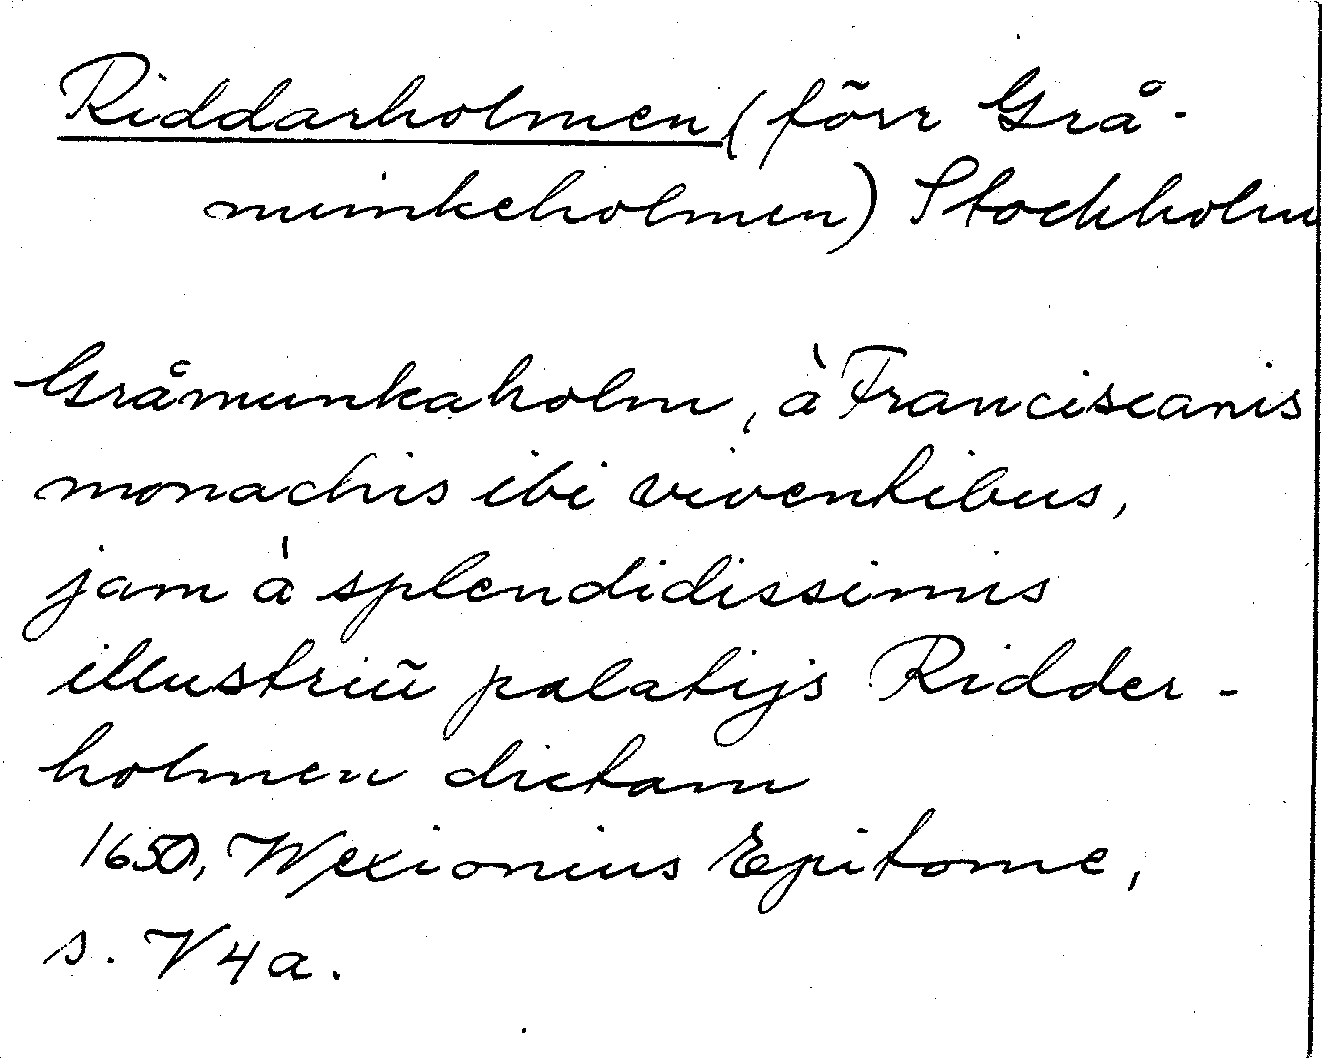 Riddarholmen (förr Grå-
munkeholmen) Stockholm
Gråmunkaholm, à Franciscanis
monachis ibi viventibus,
jam à splendidissimis
illustriũ palatijs Ridder-
holmen dictam
1650, Wexionius Epitome,
s. V4a.